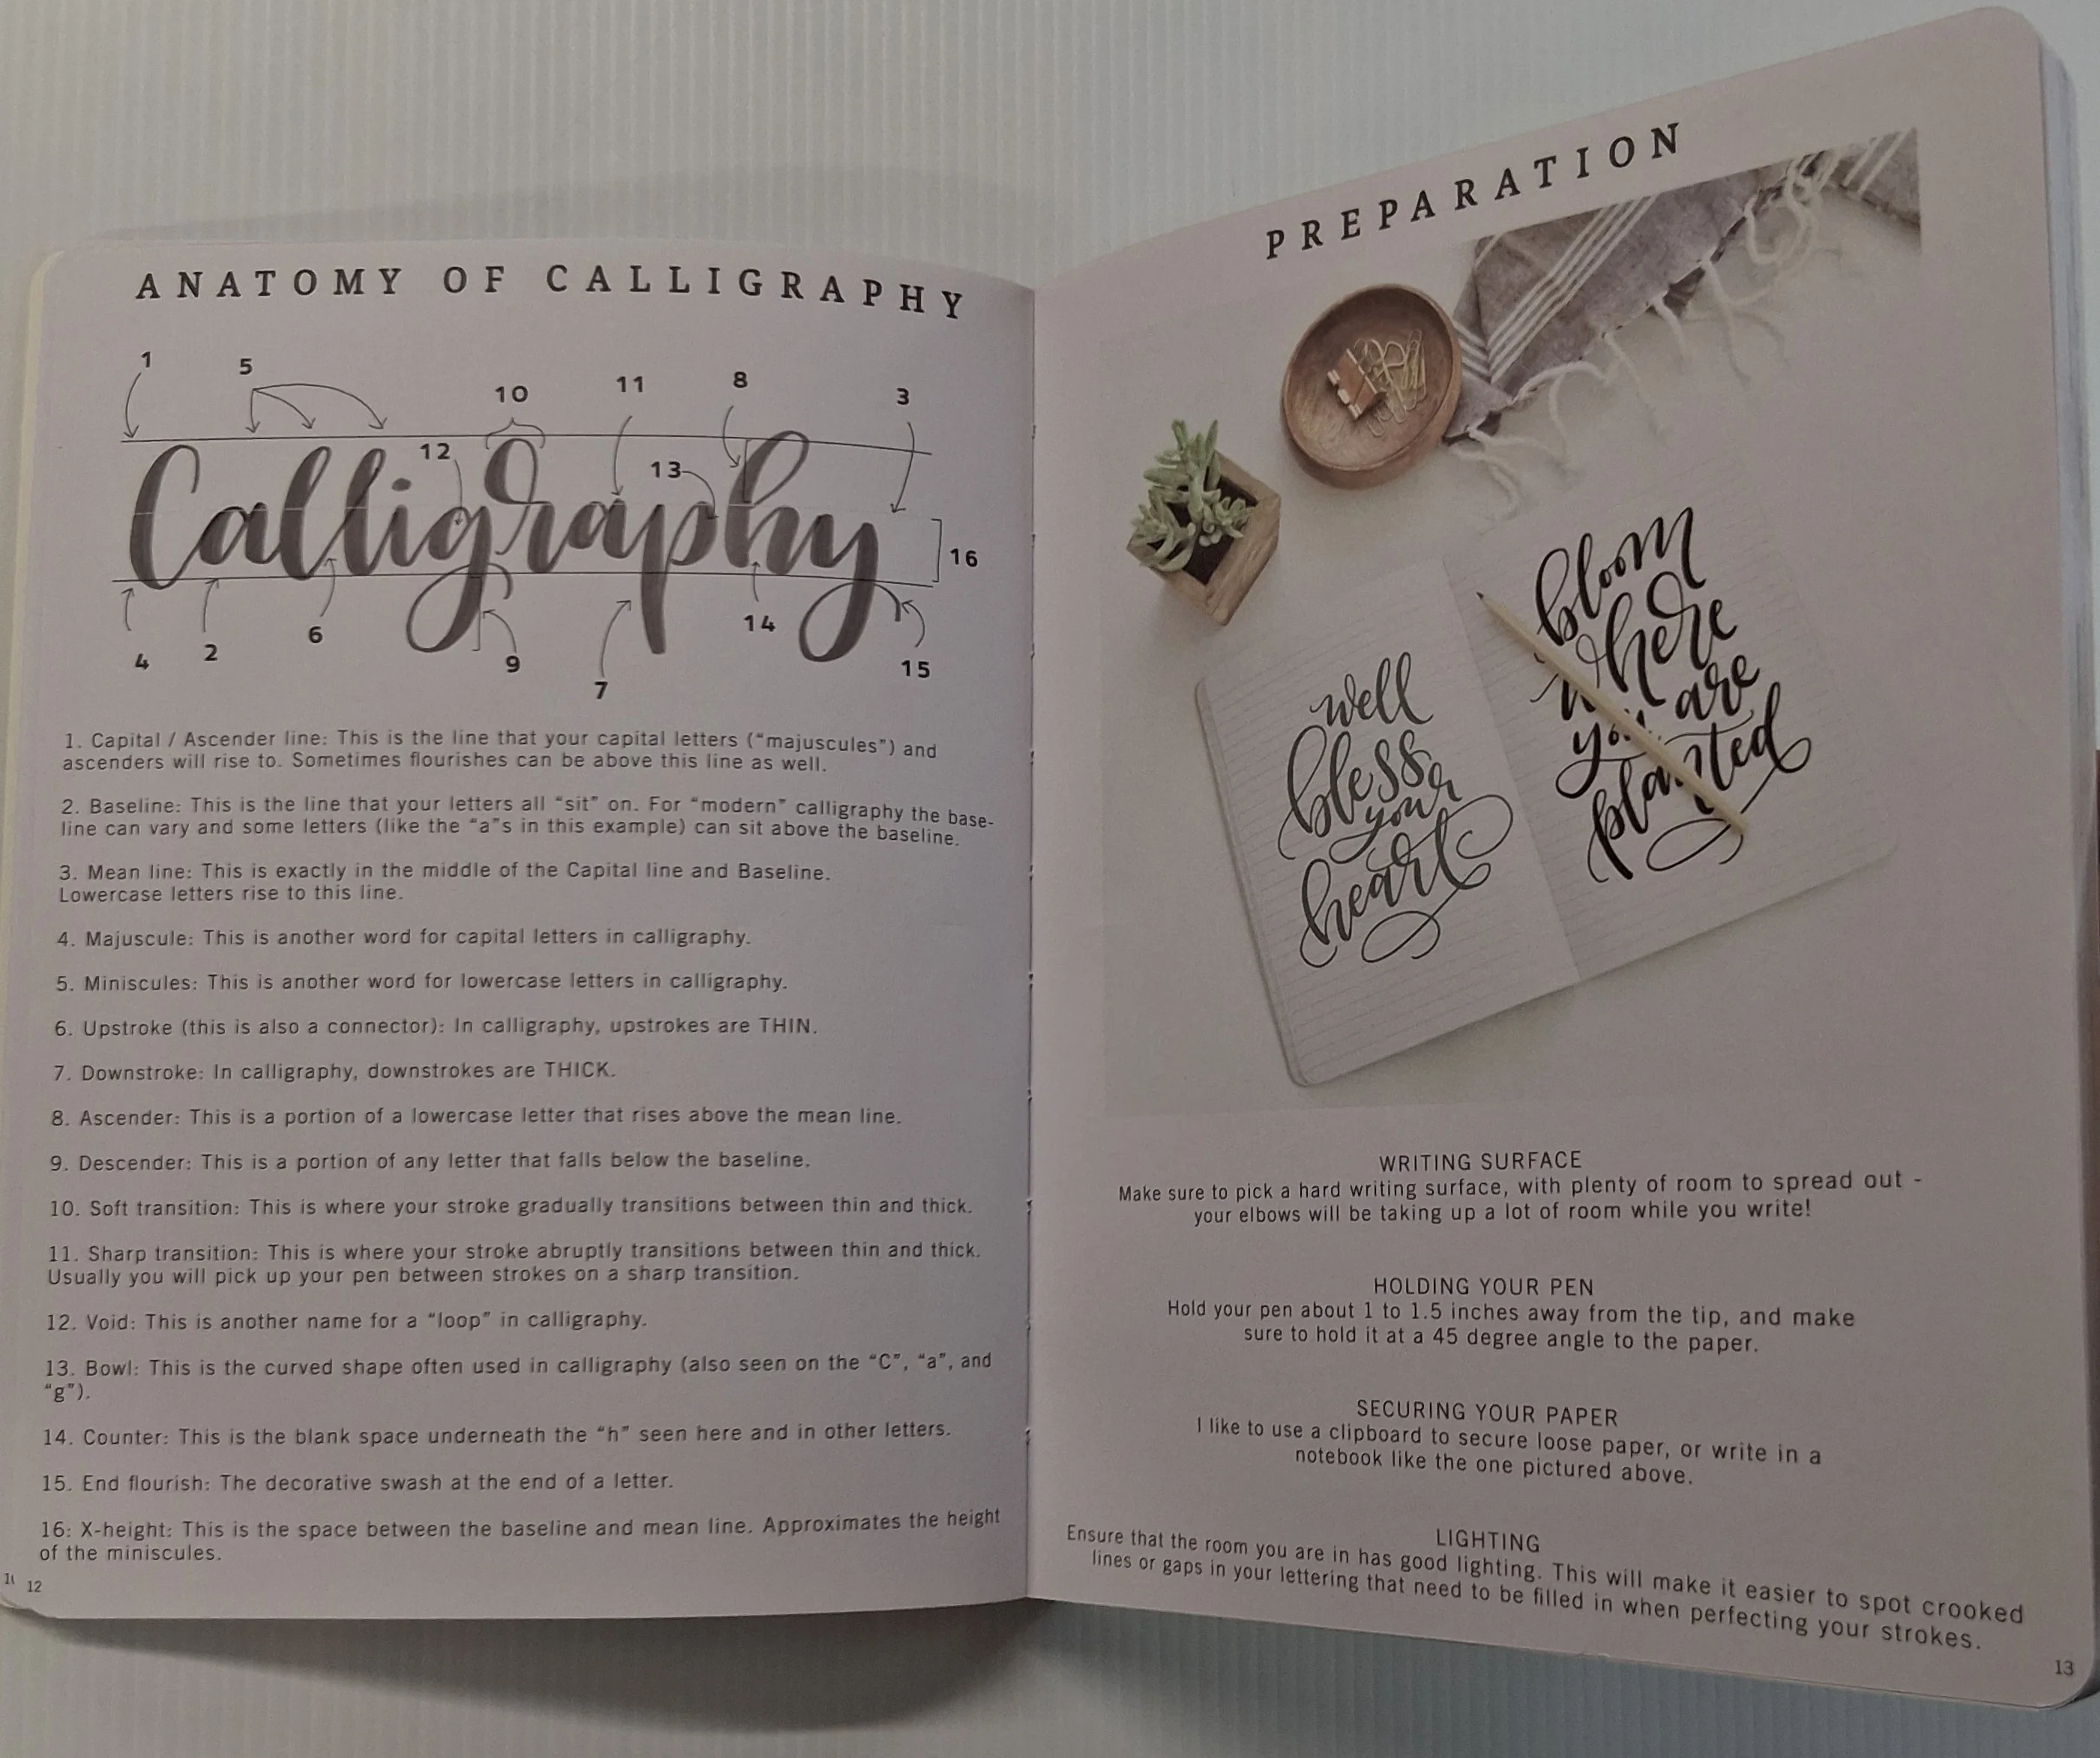 ANATOMY OF CALLIGRAPHY
1
5
10
11
8
3
12
13
Calligraphy
16
4
2
6
9
7
14
15
1. Capital / Ascender line: This is the line that your capital letters (“majuscules”) and
ascenders will rise to. Sometimes flourishes can be above this line as well.
2. Baseline: This is the line that your letters all “sit” on. For “modern” calligraphy the base-
line can vary and some letters (like the “a”s in this example) can sit above the baseline.
3. Mean line: This is exactly in the middle of the Capital line and Baseline.
Lowercase letters rise to this line.
4. Majuscule: This is another word for capital letters in calligraphy.
5. Miniscules: This is another word for lowercase letters in calligraphy.
6. Upstroke (this is also a connector): In calligraphy, upstrokes are THIN.
7. Downstroke: In calligraphy, downstrokes are THICK.
8. Ascender: This is a portion of a lowercase letter that rises above the mean line.
9. Descender: This is a portion of any letter that falls below the baseline.
10. Soft transition: This is where your stroke gradually transitions between thin and thick.
11. Sharp transition: This is where your stroke abruptly transitions between thin and thick.
Usually you will pick up your pen between strokes on a sharp transition.
12. Void: This is another name for a “loop” in calligraphy.
13. Bowl: This is the curved shape often used in calligraphy (also seen on the “C”, “a”, and
“g”).
14. Counter: This is the blank space underneath the “h” seen here and in other letters.
15. End flourish: The decorative swash at the end of a letter.
16: X-height: This is the space between the baseline and mean line. Approximates the height
of the miniscules.
12
PREPARATION
well
bless
your
heart
bloom
where
you are
planted
WRITING SURFACE
Make sure to pick a hard writing surface, with plenty of room to spread out -
your elbows will be taking up a lot of room while you write!
HOLDING YOUR PEN
Hold your pen about 1 to 1.5 inches away from the tip, and make
sure to hold it at a 45 degree angle to the paper.
SECURING YOUR PAPER
I like to use a clipboard to secure loose paper, or write in a
notebook like the one pictured above.
LIGHTING
Ensure that the room you are in has good lighting. This will make it easier to spot crooked
lines or gaps in your lettering that need to be filled in when perfecting your strokes.
13